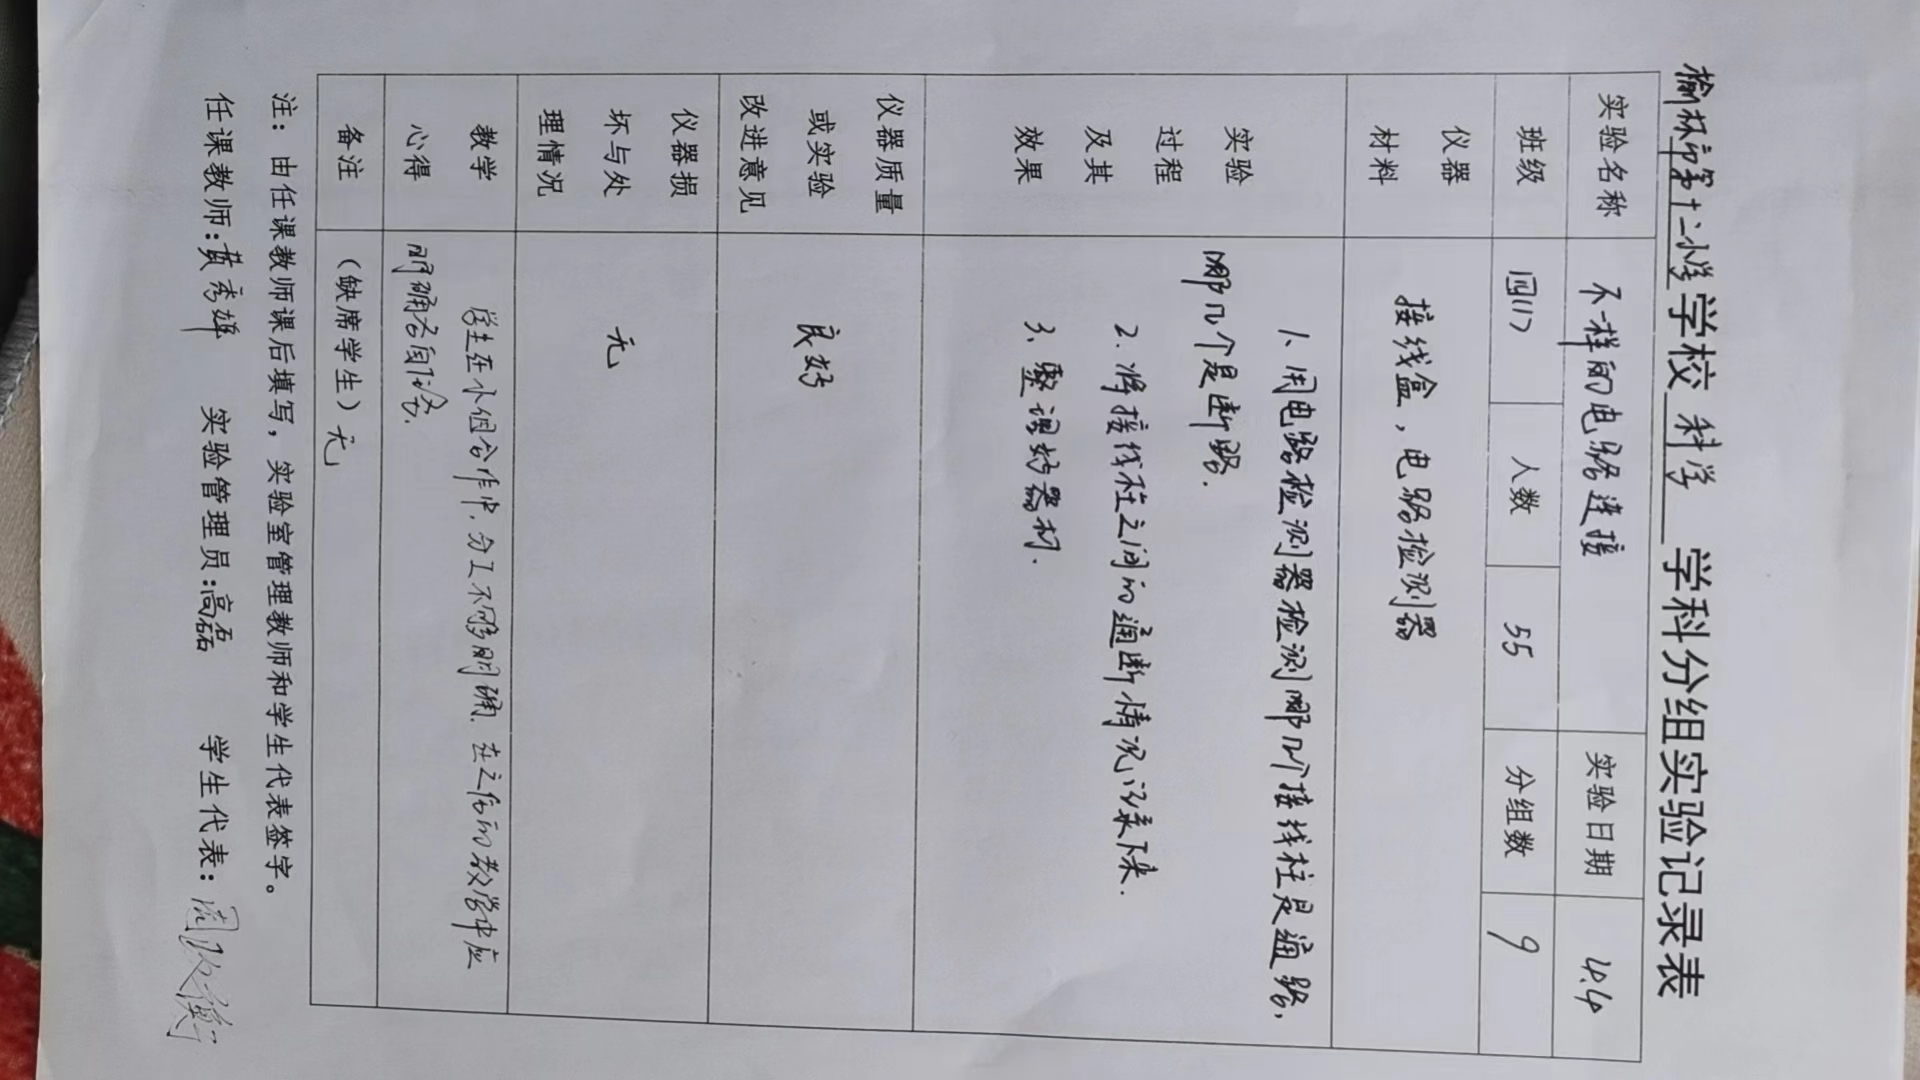 榆林市第十二小学学校 科学 学科分组实验记录表
实验名称 不一样的电路连接 实验日期 4.4
班级 四(1) 人数 55 分组数 9
仪器
材料
接线盒，电路检测器
实验
过程
及其
效果
1、用电路检测器检测哪几个接线柱是通路，
哪几个是断路.
2. 将接线柱之间的通断情况记录下来.
3、整理好器材.
仪器质量
或实验
改进意见
良好
仪器损
坏与处
理情况
无
教学
心得
学生在小组合作中，分工不够明确. 在之后的教学中应
明确各自任务.
备注 （缺席学生）无
注：由任课教师课后填写，实验室管理教师和学生代表签字。
任课教师:黄秀雄 实验管理员:高磊 学生代表: